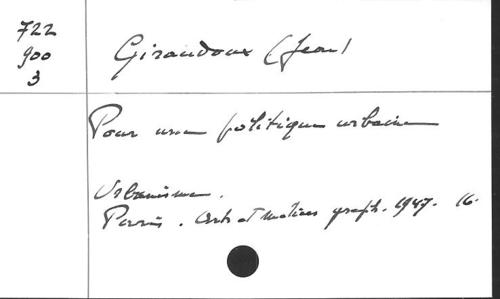 722
900
3
Giraudoux (Jean)
Pour une politique urbaine
Urbanisme.
Paris. Arts et Métiers graph. 1947. 16.